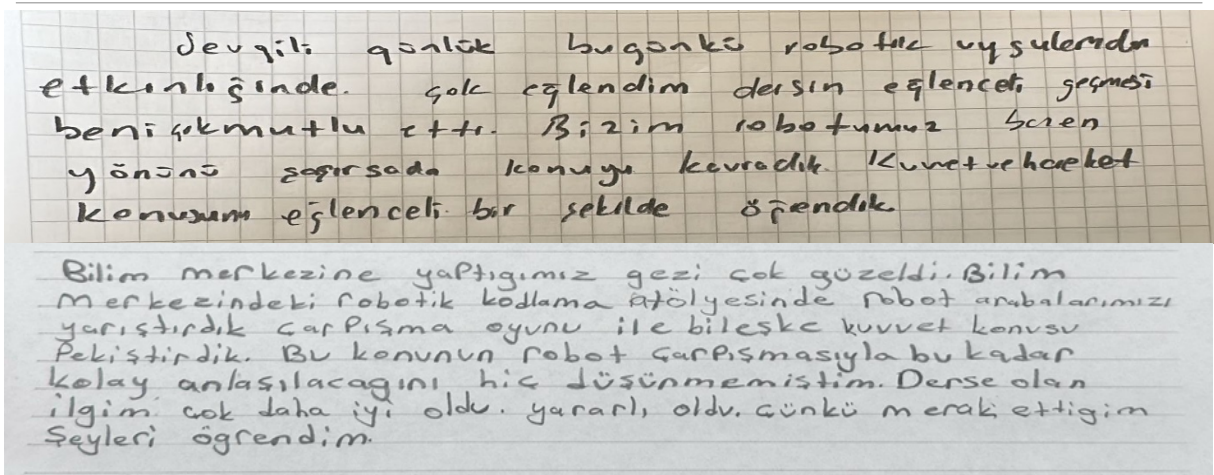 Sevgili günlük bugünkü robotik uygulamada
etkinliğinde. çok eğlendim dersin eğlenceli geçmesi
beni çokmutlu etti. Bizim robotumuz bazen
yönünü şaşırsada konuyu kavradık. Kuvvet ve hareket
konusunu eğlenceli bir şekilde öğrendik.
Bilim merkezine yaptıgımız gezi çok güzeldi. Bilim
merkezindeki robotik kodlama atölyesinde robot arabalarımızı
yarıştırdık çarpışma oyunu ile bileşke kuvvet konusu
Pekiştirdik. Bu konunun robot çarpışmasıyla bu kadar
kolay anlaşılacagını hiç düşünmemiştim. Derse olan
ilgim çok daha iyi oldu. yararlı oldu. Çünkü merak ettigim
Şeyleri ögrendim.